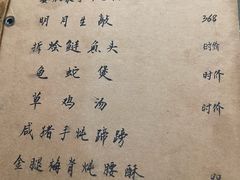 明月生敲 368
拆烩鲢鱼头 时价
龟蛇煲 时价
草鸡汤 时价
咸猪手炖蹄膀
金腿梅脊炖腰酥